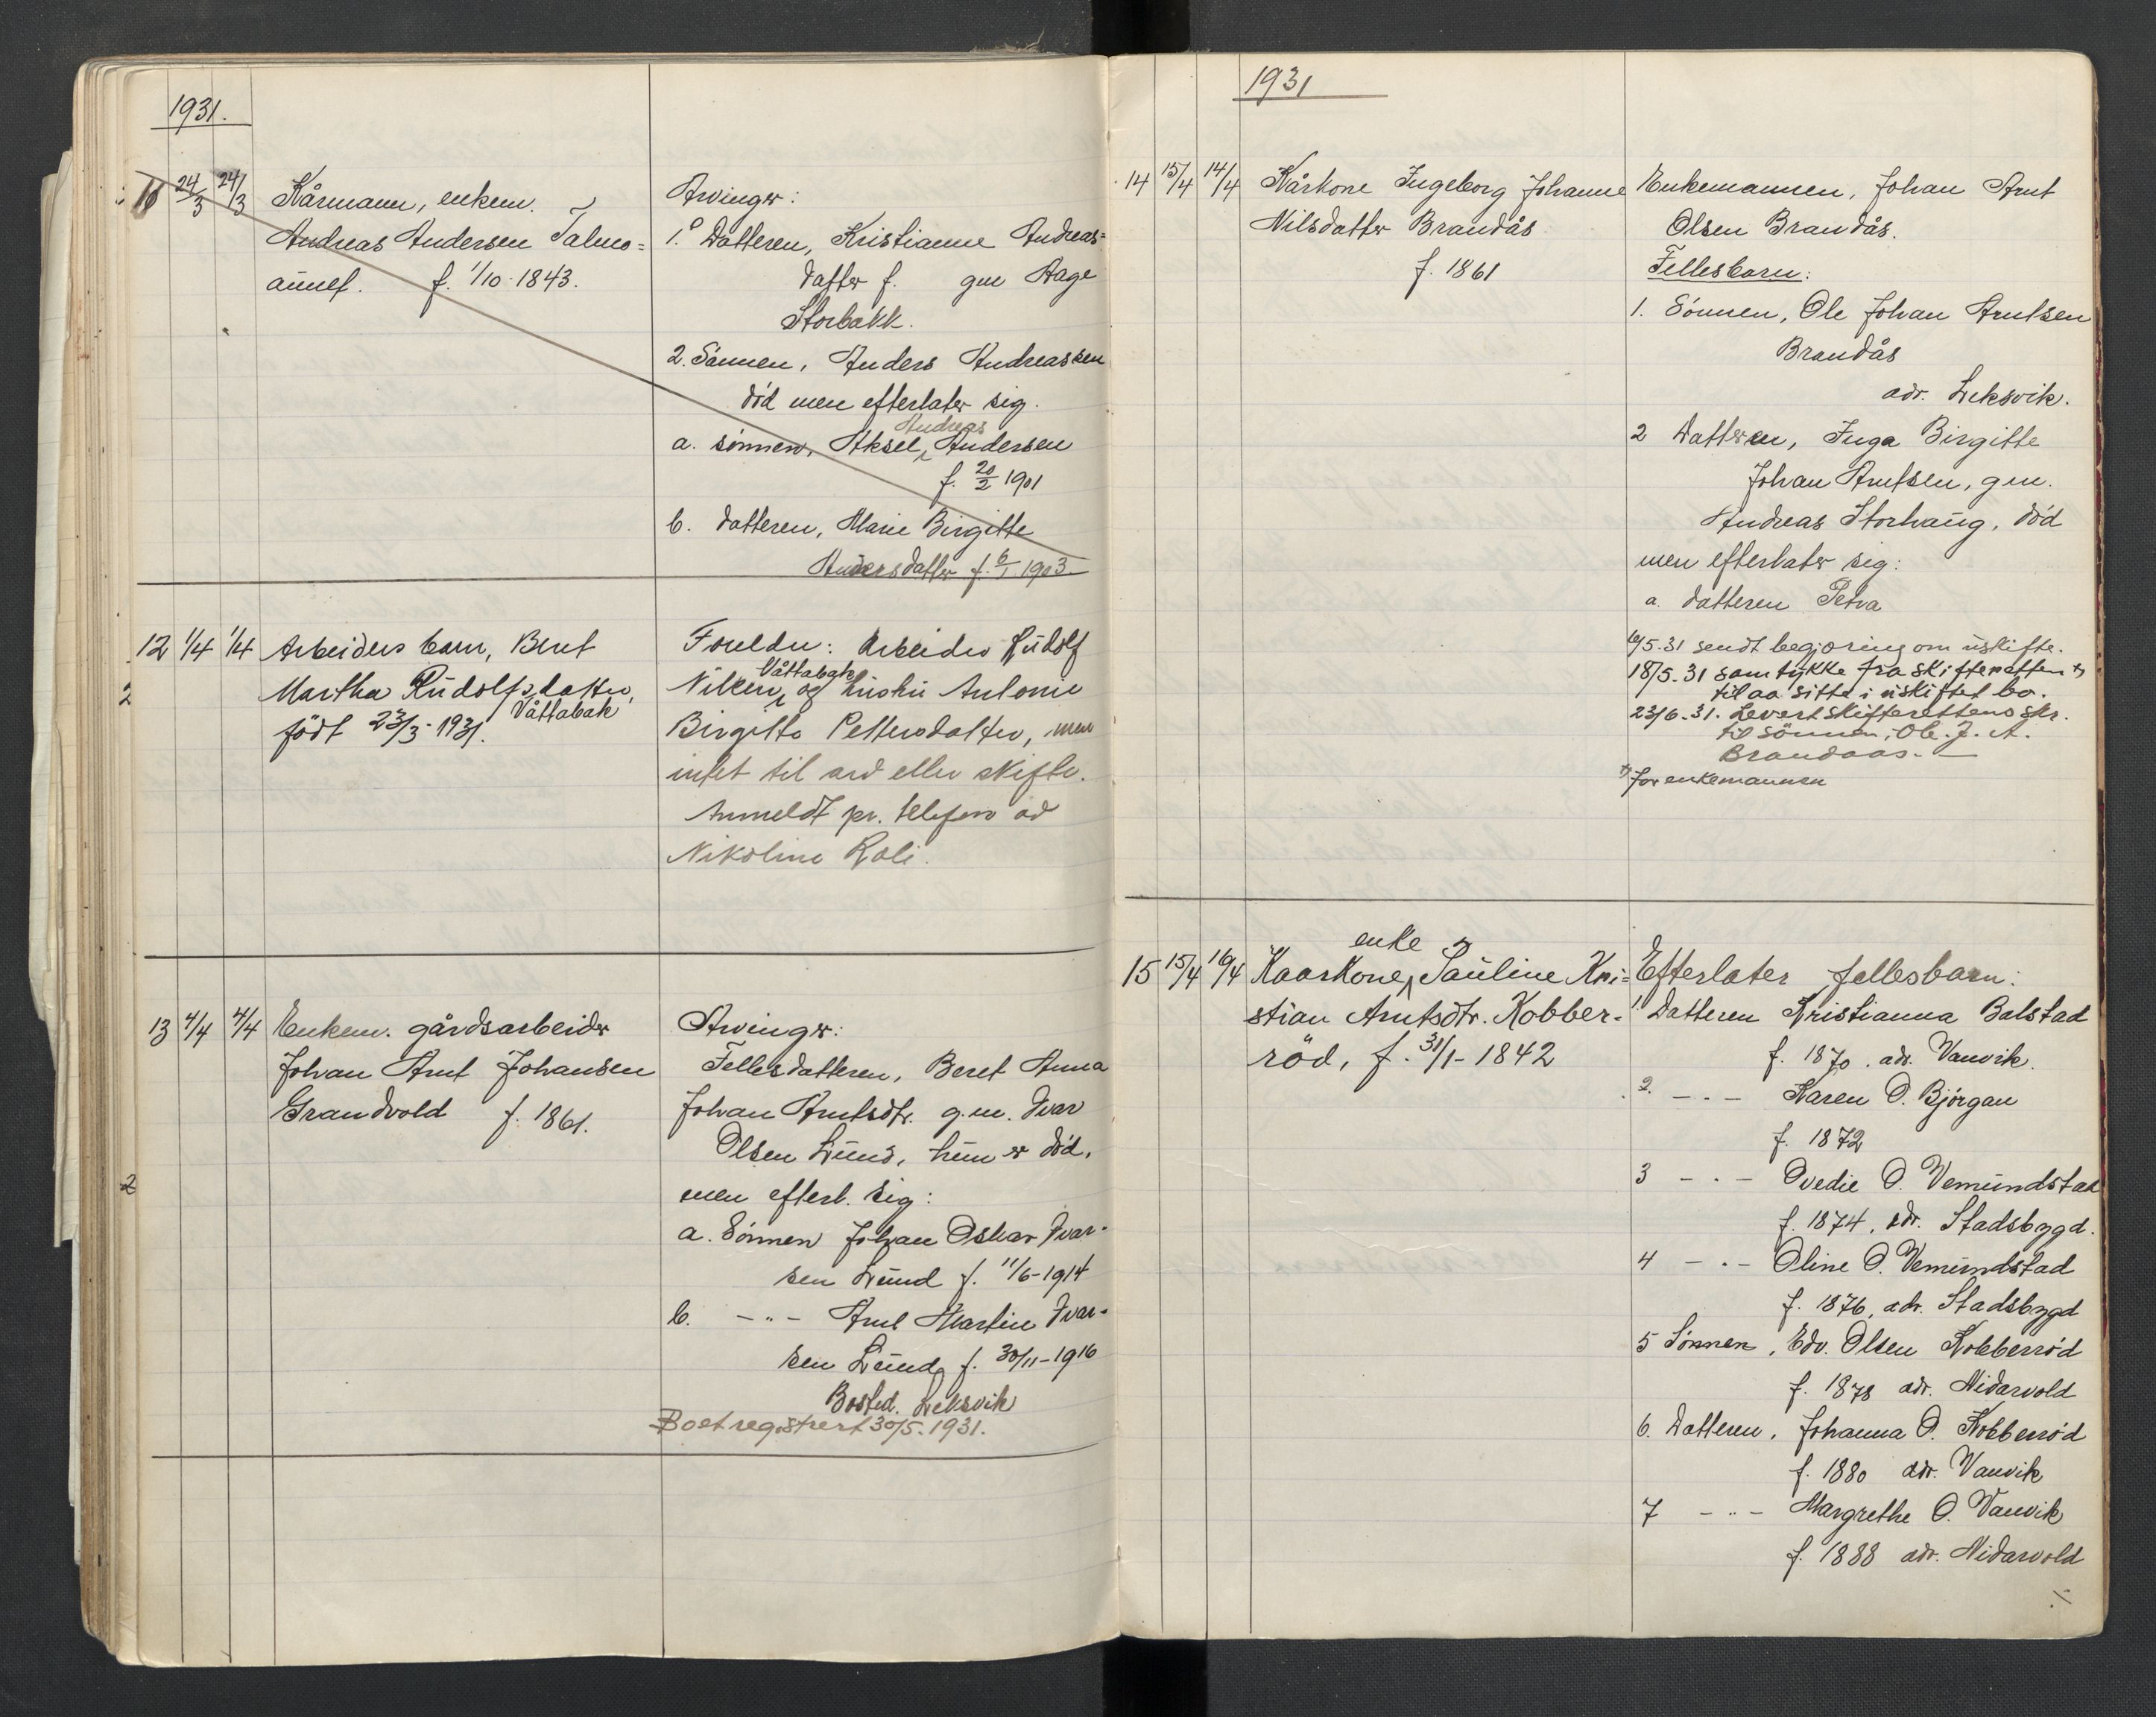 1931.
11 24/3 24/3 Kårmann, enkem.
Andreas Andersen Talmo=
aunet. f. 1/10-1843.
Arvinger:
1. Datteren, Kristianne Andreas=
datter f. gm Aage
Storbakk.
2. Sönnen, Anders Andreassen
död men efterlater sig.
a. sönnen, Aksel Andreas Andersen
f. 20/2 1901
b. datteren, Marie Birgitte
Andersdatter f. 6/1 1903
2
12 1/4 1/4 Arbeiders barn, Beret
Martha Rudolfsdatter,
Våttabak
födt 23/3-1931.
Foreldre: Arbeider Rudolf
Nilsen Våttabak og hustru Antonie
Birgitte Pettersdatter, men
intet til arv eller skifte.
Anmeldt pr. telefon av
Nikoline Roli.
2
13 4/4 4/4 Enkem. gårdsarbeider
Johan Arnt Johansen
Grandvold f. 1861.
Arvinger:
Fellesdatteren, Beret Anna
Johan Arntsdtr. g.m. Ivar
Olsen Lund, hun er död,
men efterl. sig:
a. Sönnen Johan Oskar Ivar-
sen Lund f. 11/6-1914
b. -"- Arnt Martin Ivar-
sen Lund f. 30/11-1916
Bosted. Leksvik
Boet registrert 30/5.1931.
1931
14 15/4 14/4 Kårkone Ingeborg Johanne
Nilsdatter Brandås
f. 1861
Enkemannen, Johan Arnt
Olsen Brandås.
Fellesbarn:
1. Sönnen, Ole Johan Arntsen
Brandås
adr. Leksvik.
2 Datteren, Inga Birgitte
Johan Arntsen, gm.
Andreas Storhaug, död
men efterlater sig:
a. datteren Petra
6/5.31 sendt begjæring om uskifte.
18/5.31 samtykke fra skifteretten x)
til aa sitte i uskiftet bo.
23/6.31. Levert skifterettens skr.
til sönnen, Ole J. A.
Brandaas.-
x) for enkemannen
15 15/4 16/4 Kaarkone, enke Pauline Kri=
stian Arntsdtr. Kobber-
röd, f. 31/1-1842
Efterlater fellesbarn:
1 Datteren Kristianna Balstad
f. 1870. adr. Vanvik.
2. -"- Karen O. Björgan
f. 1872
3 -"- Ovedie O. Vemundstad
f. 1874, adr. Stadsbygd.
4 -"- Oline O. Vemundstad
f. 1876, adr. Stadsbygd
5 Sönnen, Edv. Olsen Kobberröd
f. 1878 adr. Nidarvold
6. Datteren, Johanna O. Kobberröd
f. 1880 adr. Vanvik
7 -"- Margrethe O. Vanvik
f. 1888 adr. Nidarvold
./.